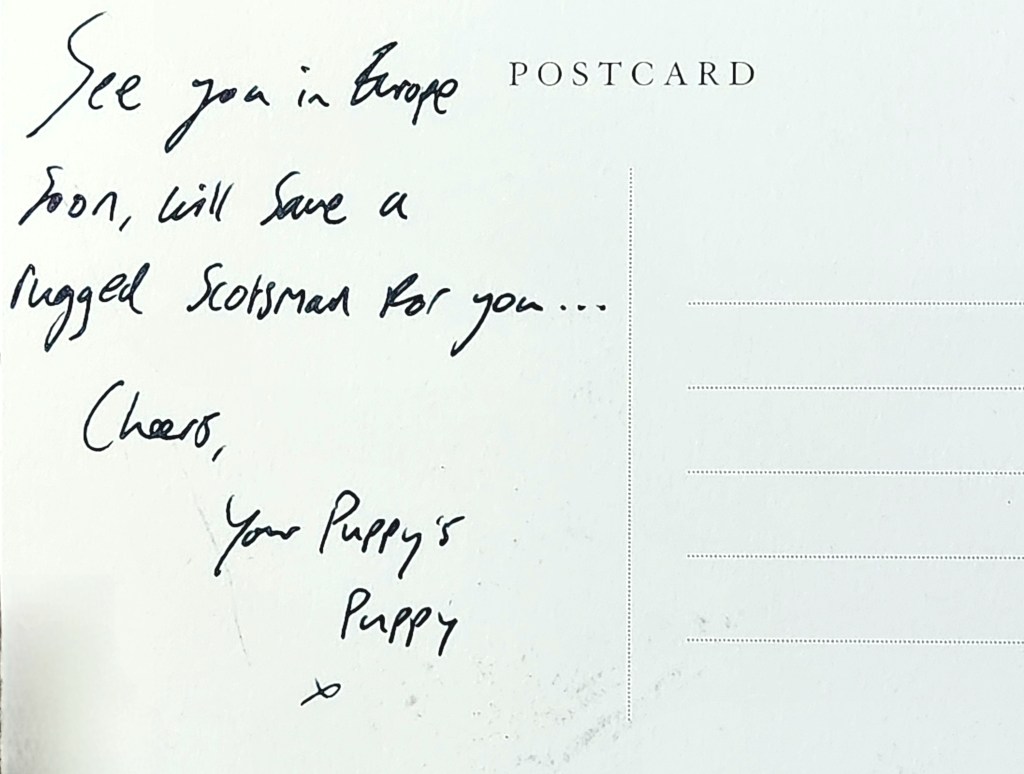 See you in Europe
POSTCARD
soon, will save a
rugged Scotsman for you...
Cheers,
Your Puppy's
Puppy
x